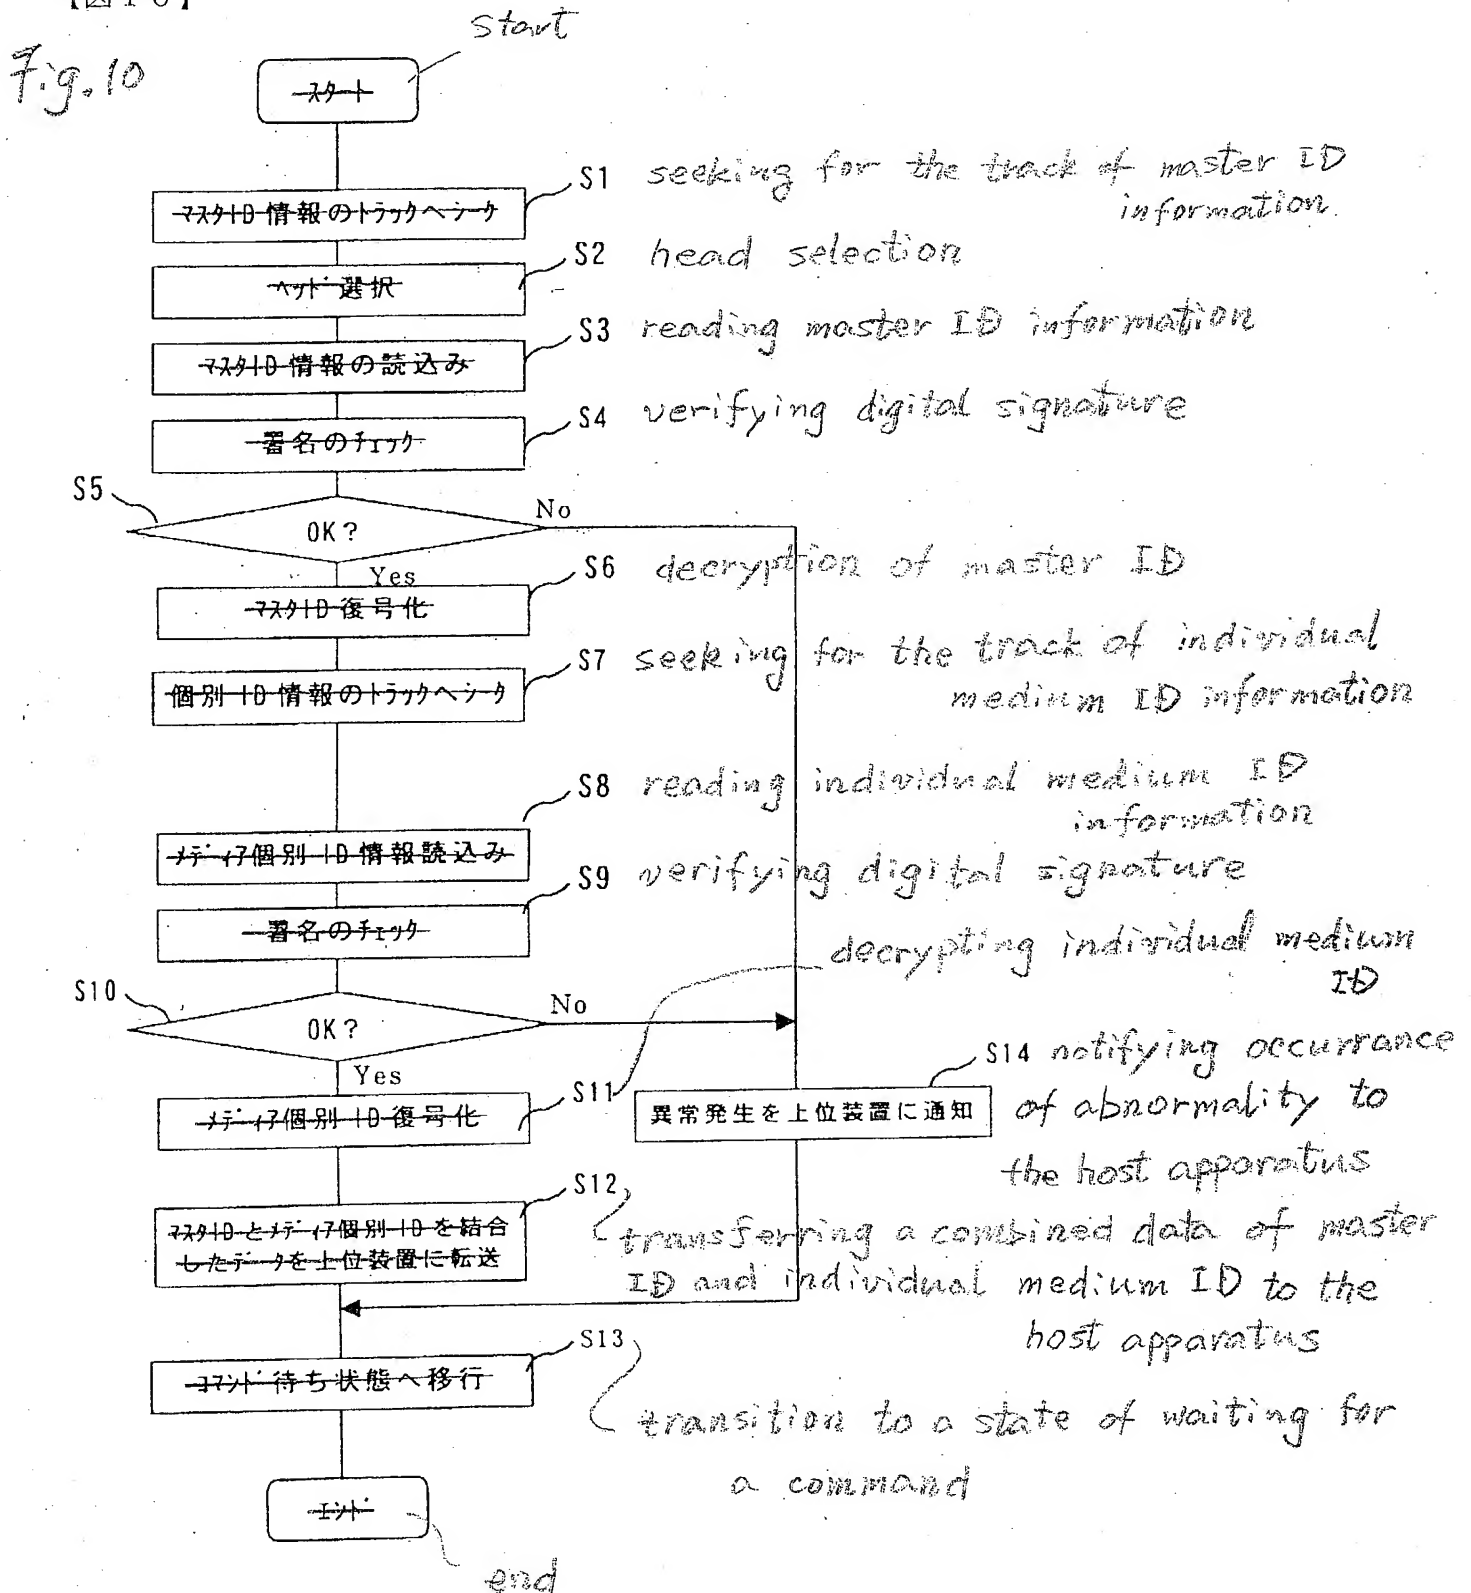 【図10】
Fig.10
start
スタート
S1 seeking for the track of master ID
information.
マスタID情報のトラックへシーク
S2 head selection
ヘッド選択
S3 reading master ID information
マスタID情報の読込み
S4 verifying digital signature
署名のチェック
S5
OK?
No
Yes
S6 decryption of master ID
マスタID復号化
S7 seeking for the track of individual
medium ID information
個別ID情報のトラックへシーク
S8 reading individual medium ID
information
メディア個別ID情報読込み
S9 verifying digital signature
署名のチェック
decrypting individual medium
ID
S10
OK?
No
Yes
S11
メディア個別ID復号化
S14 notifying occurrance
of abnormality to
the host apparatus
異常発生を上位装置に通知
S12
マスタIDとメディア個別IDを結合
したデータを上位装置に転送
transferring a combined data of master
ID and individual medium ID to the
host apparatus
S13
コマンド待ち状態へ移行
transition to a state of waiting for
a command
エンド
end